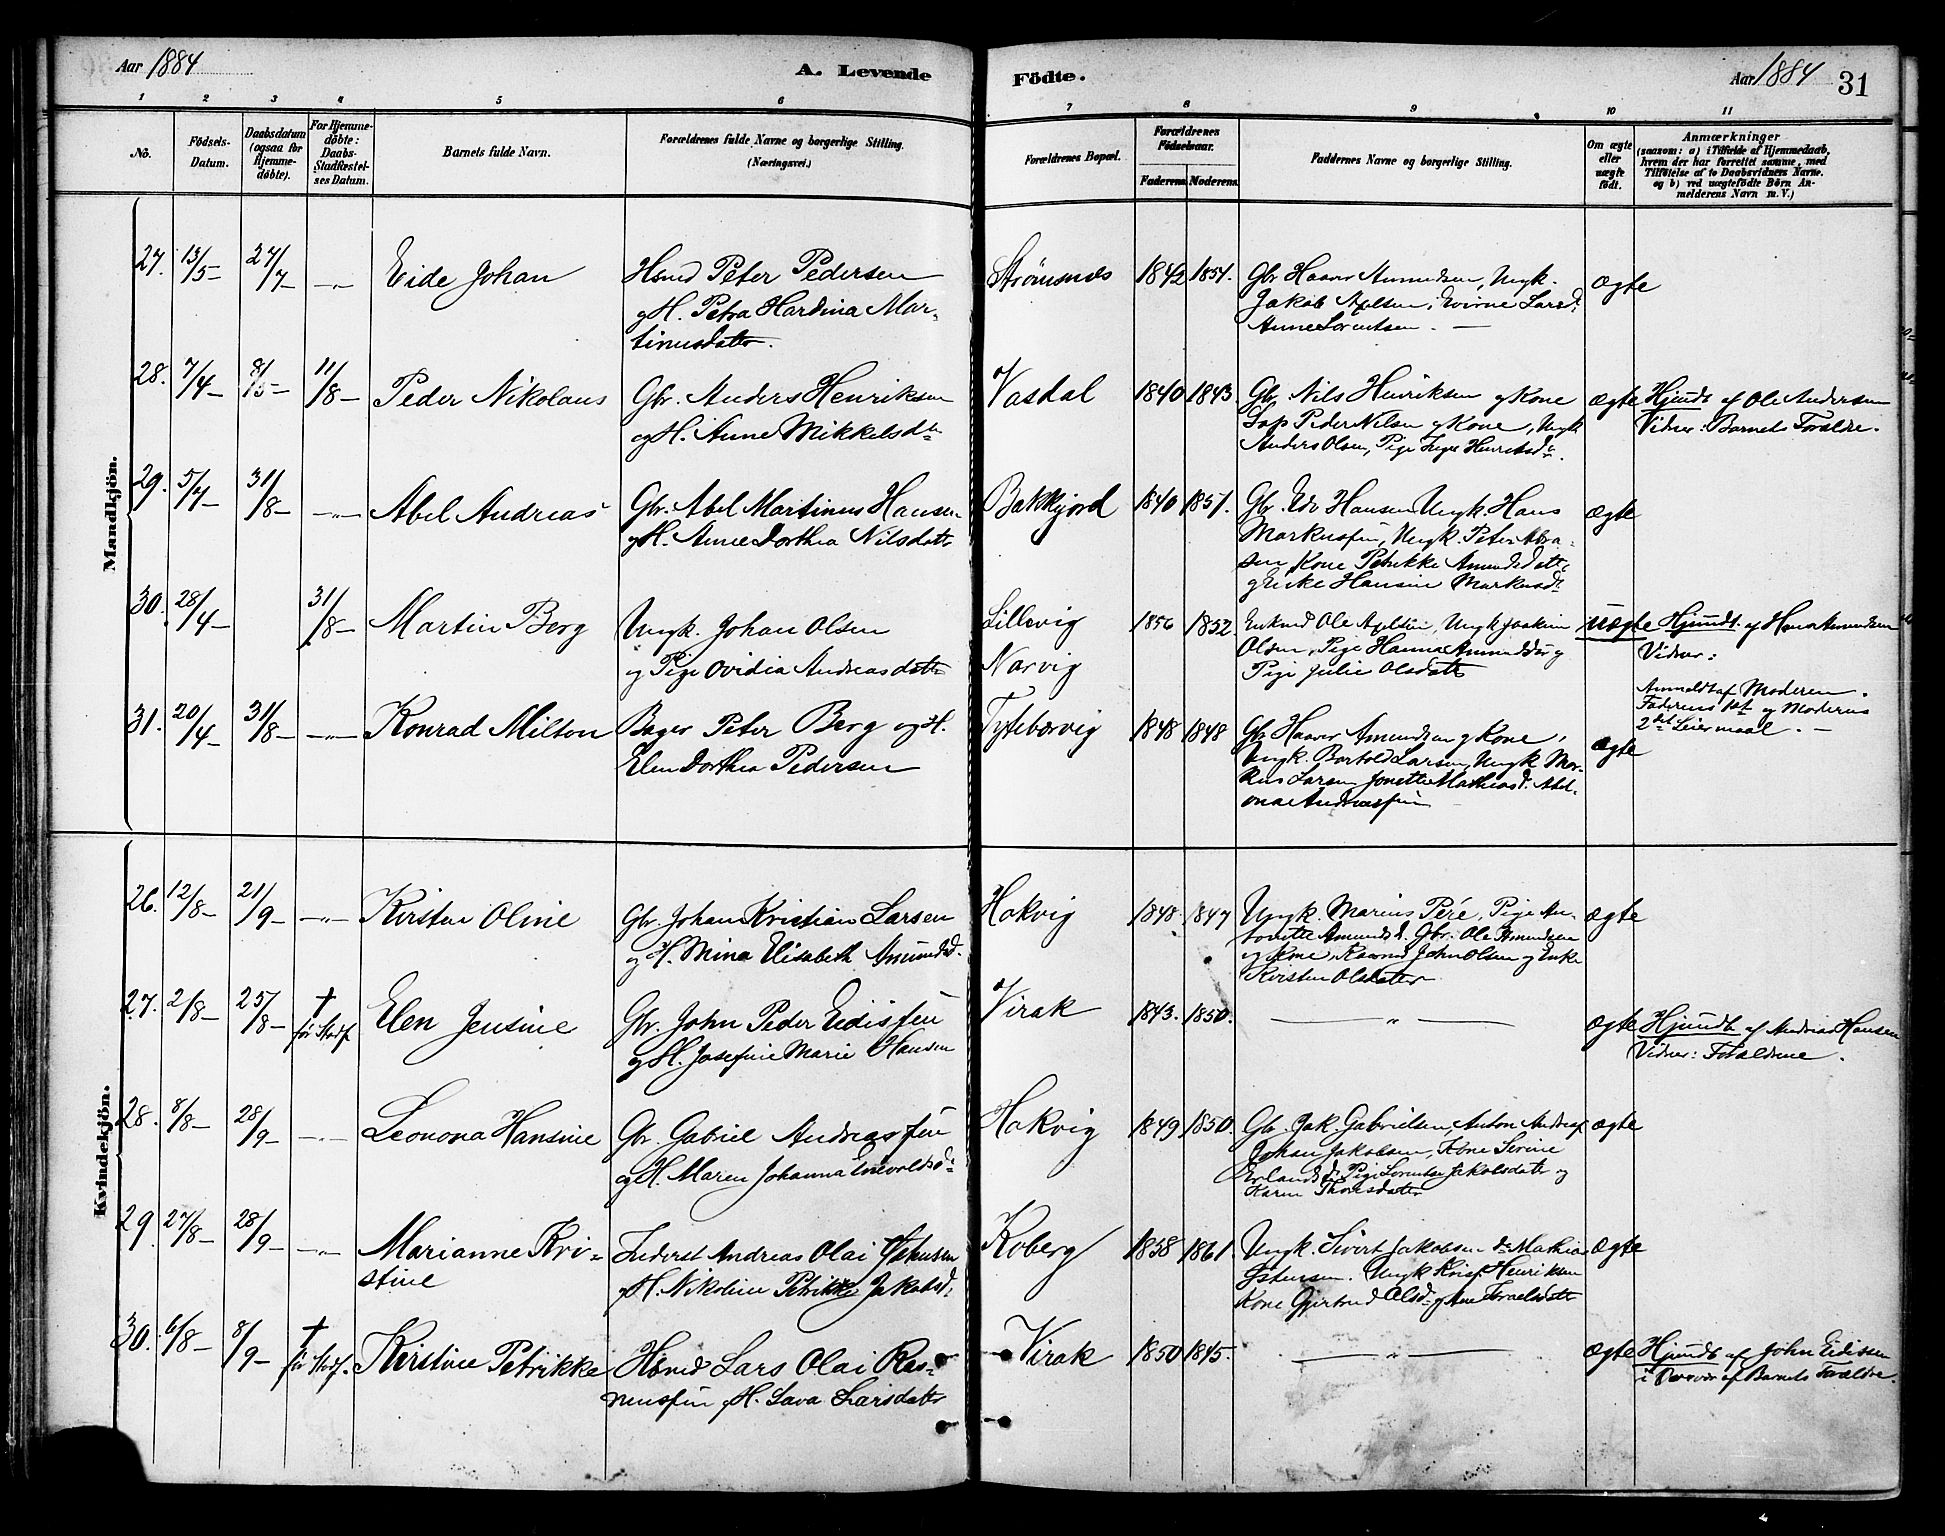 Aar 1884
A. Levende
Födte.
Aar 1884
31
1 2 3 4 5 6 7 8 9 10 11
No.
Födsels-
Datum.
Daabsdatum
(ogsaa for
Hjemme-
döbte).
For Hjemme-
döbte:
Daabs-
Stadfæstel-
ses Datum.
Barnets fulde Navn.
Forældrenes fulde Navne og borgerlige Stilling.
(Næringsvei.)
Forældrenes Bopæl.
Forældrenes
Födselsaar.
Faderens. Moderens.
Faddernes Navne og borgerlige Stilling.
Om ægte
eller
uægte
födt.
Anmærkninger
(saasom: a) i Tilfælde af Hjemmedaab,
hvem der har forrettet samme, med
Tilföielse af to Daabsvidners Navne.
og b) ved uægtefödte Börn An-
melderens Navn m. V.)
Mandkjön.
27. 13/5 - 27/7 - -„- Eide Johan
Hsmd Peter Pedersen
og H. Petra Hardina Mar-
tinusdatter.
Strömsnes 1842 1854.
Gbr Haaver Amundsen, Ungk.
Jakob Axelsen, Larsd.
Anne Lorentsen. -
ægte
28. 7/4 - 8/5 - 11/8 - Peder Nikolaus
Gbr. Anders Henriksen
og H. Anne Mikkelsd
Vasdal 1840 1843.
Gbr. Nils Henriksen og Kone
Lap Peder Nilsen og Kone, Ungk
Anders Olsen, Pige Inger Henriksd.
ægte
Hjmdt af Ole Andersen
Vidner: Barnets Forældre.
29. 5/7 31/8 - -„- Abel Andreas
Gbr. Abel Martinus Hansen
og H. Anne Dorthea Nilsdatter
Bakkjord 1840 1851.
Gbr. Edv Hansen Ungk. Hans
Markussen, Ungk. Peter Abra-
sen Kone Petrikke Amundsdatter
og Enke Hansine Markusd
ægte
30. 28/4 - 31/8 - Martin Berg
Ungk. Johan Olsen
og Pige Ovidia Andreasdatter
Lillevig
Narvig
1856 1852.
Enkmd Ole Axelsen, Ungk Joakim
Olsen, Pige Hanna Amundsd og
Pige Julie Olsdatter
uægte
Hjmdt. af Hans Amundsen
Vidner:
Anmeldt af Moderen.
Faderens 1st og Moderens
2det Leiermaal. -
31. 20/4 - 31/8 - -„- Konrad Milton
Bager Peter Berg og H.
Elen Dorthea Pedersen
Tyttebærvig 1848 1848
Gbr Haaver Amundsen og Kone,
Ungk. Bertold Larsen, Ungk Mar-
kus Larsen Jonette Mathiasd. Abel-
ona Andreassen
ægte
Kvindekjön.
26. 12/8 - 21/9 - -„- Kirsten Oline
Gbr. Johan Kristian Larsen
og H. Mina Elisabeth Amundsd.
Hakvig 1848 1847
Ungk. Marius Peré, Pige An-
tonette Amundsd. Gbr. Ole Amundsen
og Kone, John Olsen og Enke
Kirsten Olsdatter
ægte
27. 2/8 - 25/8 - † för Stadf
Elen Jensine
Gbr. John Peder Eidissen
og H. Josefine Marie Hansen
Virak 1843. 1850.
- „ -
ægte
Hjmdt af Andreas Hansen
Vidner: Forældrene.
28. 8/8 - 28/9 - -„- Leonona Hansine
Gbr. Gabriel Andreassen
og H. Maren Johanna Enevoldsd
Hakvig 1849 1850.
Gbr. Jak. Gabrielsen, Anton Andreas
Johan Jakobsen, Kone Serine
Erlandsd Pige Lorentse Jakobsdatter og
Karen Thomsdatter
ægte
29. 27/8 - 28/9 - -„- Marianne Kri-
stine
Inderst Andreas Olai Johnsen
og H. Nikoline Petrikke Jakobsd.
Koberg 1858 1861.
Ungk. Sivert Jakobsen do Mathias
Ungk Krist Henriksen
Kone Gjertrud Olsd. og Ane Israelsdatter
ægte
30. 6/8 - 8/9 - † för Stadf.
Kirstine Petrikke
Hsmd Lars Olai Ras-
mussen og H. Lava Larsdatter
Virak 1850 1845.
- „ -
ægte
Hjmdt af John Eidissen
i Overvær af Barnets Forældre.